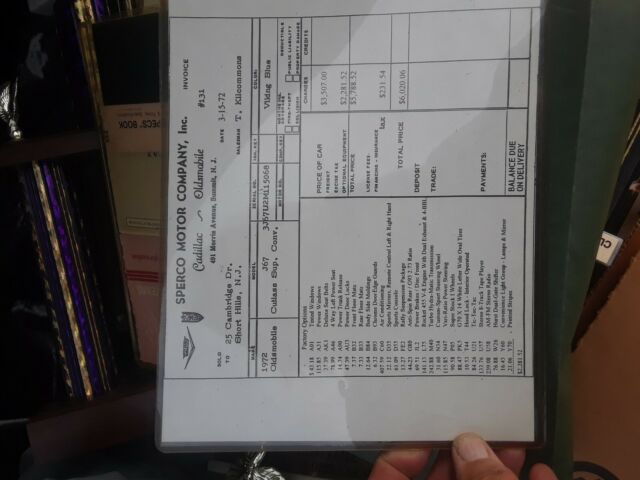 SPERCO MOTOR COMPANY, Inc.
INVOICE
Cadillac ~ Oldsmobile
#131
491 Morris Avenue, Summit, N. J.
DATE 3-15-72
SOLD TO
25 Cambridge Dr.
Short Hills, N.J.
SALESMAN T. Kilcommons
MAKE MODEL SERIAL NO. KEY COLOR
1972
Oldsmobile
J67
Cutlass Sup. Conv.
3J67U2M115068
Viking Blue
MOTOR NO.
FIRE-THEFT
COLLISION
DEDUCTIBLE
PUBLIC LIABILITY
PROPERTY DAMAGE
CHARGES CREDITS
PRICE OF CAR $3,507.00
FREIGHT
EXCISE TAX
OPTIONAL EQUIPMENT $2,281.52
TOTAL PRICE $5,788.52
LICENSE FEES:
FINANCING - INSURANCE
tax $231.54
TOTAL PRICE $6,020.06
DEPOSIT
TRADE:
PAYMENTS:
BALANCE DUE
ON DELIVERY
Factory Options
A01 Tinted Windows
115.85 A31 Power Windows
Deluxe Seat Belts
4 Way Left Power Seat
14.74 A90 Power Trunk Release
Power Door Locks
7.37 B32 Front Floor Mats
7.33 B33 Rear Floor Mats
12.64 B84 Body Side Moldings
6.32 B93 Chrome Door Edge Guards
407.59 C60 Air Conditioning
22.12 D35 Sports Mirrors, Remote Control Left & Right Hand
61.09 D55 Sports Console
13.27 FE2 Rally Suspension Package
44.23 G80 Anti-Spin Rear
69.51 JL2 Power Brakes / Disc Front
L75 Rocket 455 V-8 Engine With Dual Exhaust & 4-BBL
M40 Turbo Hydra-Matic Transmission
31.60 N34 Custom-Sport Steering Wheel
115.85 N47 Vari-Ratio Power Steering
90.58 P05 Super Stock I Wheels
G70 X 14 White Letter Wide Oval Tires
10.53 T44 Hood Lock - Interior Operated
84.26 U21 Tic-Toc-Tac
133.99 U57 Stereo 8-Track Tape Player
239.08 U58 AM FM Stereo Radio
76.88 W26 Hurst Dual-Gate Shifter
16.43 Y60 Convenience Light Group - Lamps & Mirror
21.06 Y70 Painted Stripes
$2,281.52
SPECS' BOOK
CL